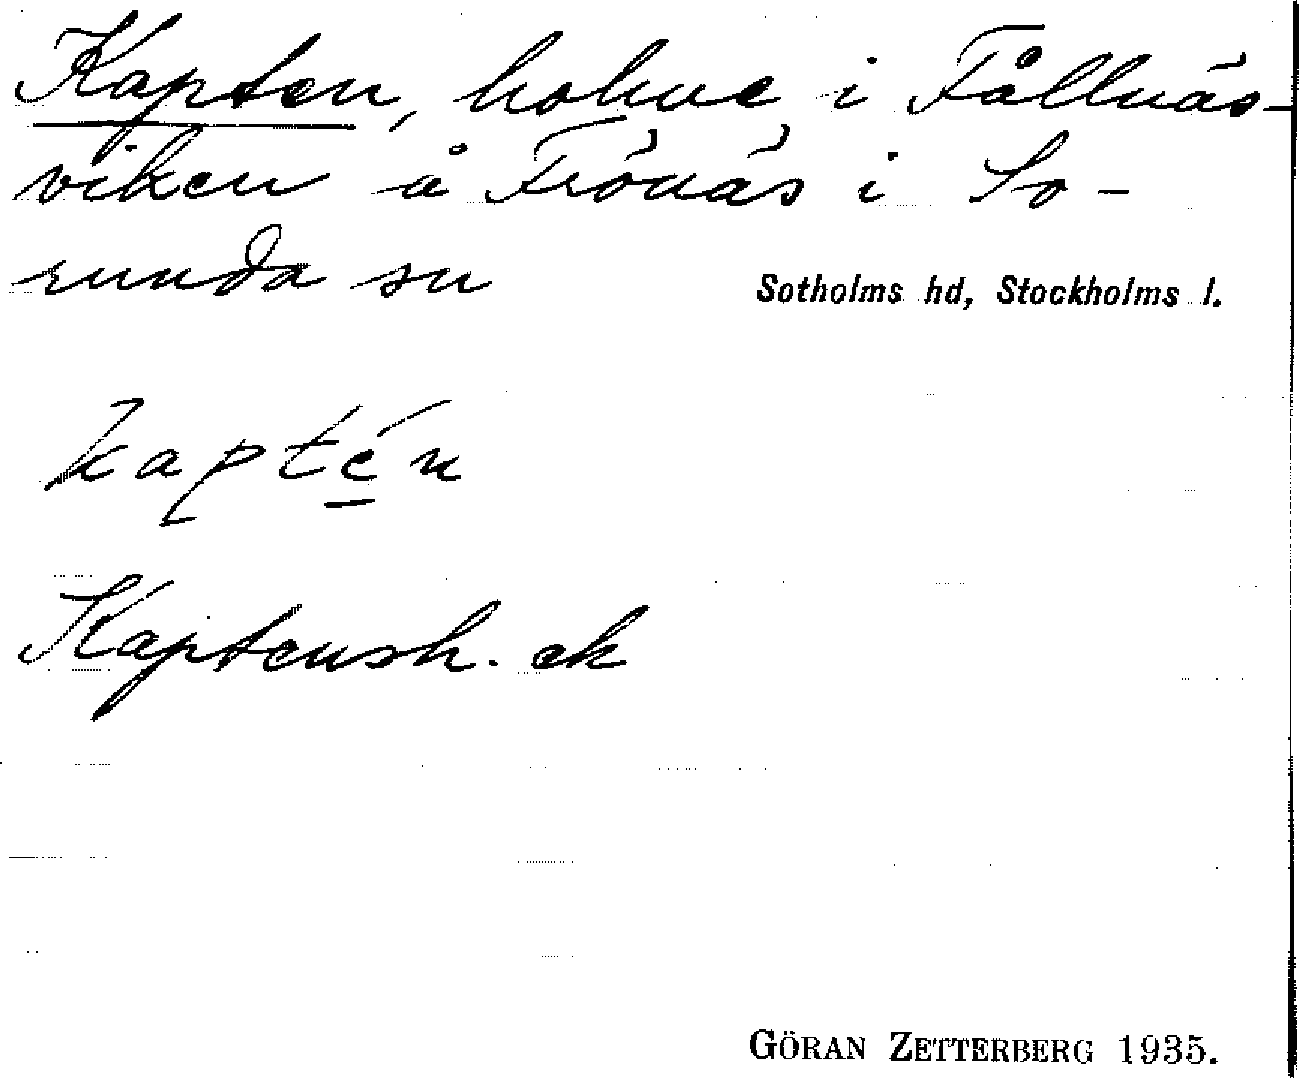 Kapten, holme i Fållnäs-
viken å Frönäs i So-
runda sn
Sotholms hd, Stockholms l.
kaptén
Kaptensh. ek
GÖRAN ZETTERBERG 1935.